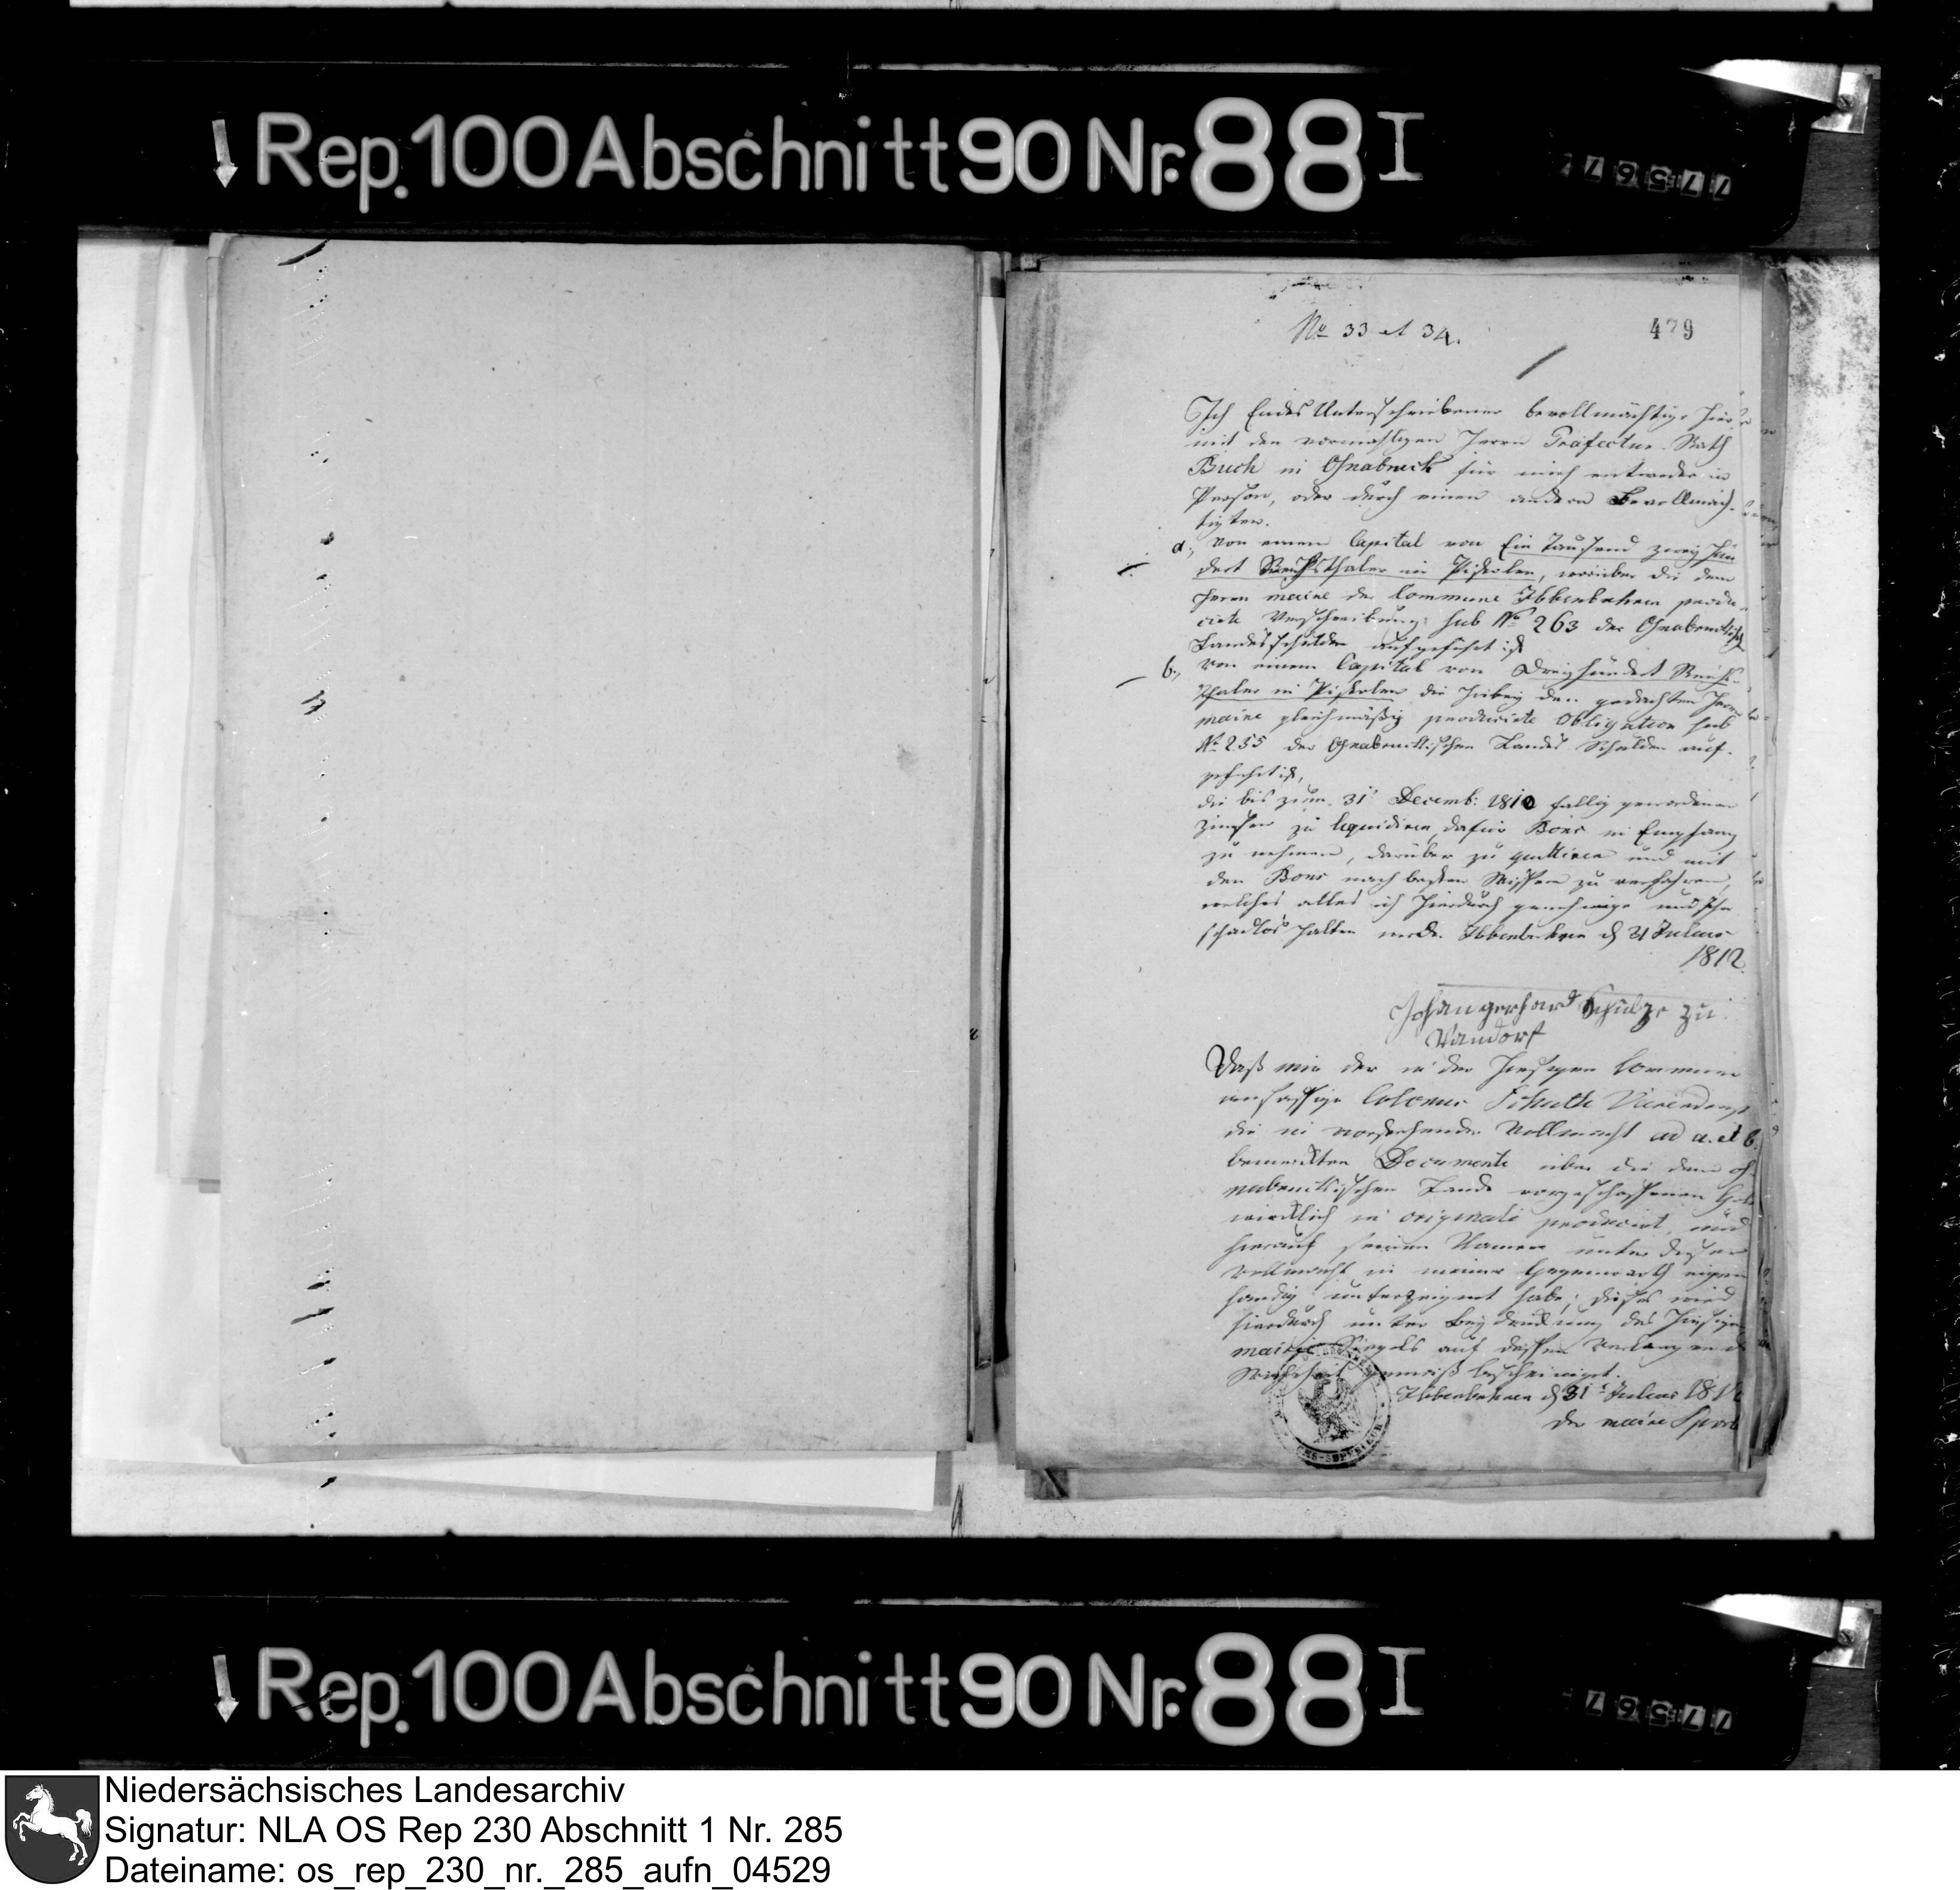 Rep. 100 Abschnitt 90 Nr. 88 I
77567
No 33 et 34.
479
Ich Endes Unterschriebener bevollmächtige hier
mit den vormahligen Herrn Präfectur-Rath
Buch in Osnabrück für mich entweder in
Person, oder durch einen andern Bevollmäch-
tigten.
a., von einem Capital von Ein Tausend zwey hun
dert Reichsthaler in Pistolen, worüber die dem
Herrn maire der Commune Ibbenbuhren produ-
cirte Verschreibung sub No 263 der Osnabrückisch
Landesschulden aufgeführt ist
b., von einem Capital von Dreyhundert Reichs-
thaler in Pistolen die hiebey den gedachten Herrn
maire gleichmäßig producirte Obligation sub
No 255 der Osnabrückischen Landes Schulden auf-
geführt ist,
die bis zum 31t Decemb: 1810 fällig gewordenen
Zinsen zu liquidiren, dafür Bons in Empfang
zu nehmen, darüber zu quittiren und mit
den Bons nach besten Wissen zu verfahren,
welches alles ich hierdurch genehmige und ihn
schadlos halten werde. Ibbenbuhren d 31 Julius
1812.
Johan gerhard Schulze zu
Daß mir der in der hiesigen Commune
ansässige Colonus Schulte
die in vorstehender Vollmacht ad a. et b.
bemerkten Documente über die dem Os
nabrückischen Lande vorgeschossenen
wirklich in originali producirt und
hierauf seinen Namen unter dieser
Vollmacht in meiner Gegenwarth eigen
händig unterzeignet habe; dieses wird
hierdurch unter Beydrückung des hiesigen
mairie Siegels auf dessen Verlangen der
Wahrheit gemäß bescheiniget.
Ibbenbuhren d 31t Julius 1812
der maire
Rep. 100 Abschnitt 90 Nr. 88 I
77567
Niedersächsisches Landesarchiv
Signatur: NLA OS Rep 230 Abschnitt 1 Nr. 285
Dateiname: os_rep_230_nr._285_aufn_04529